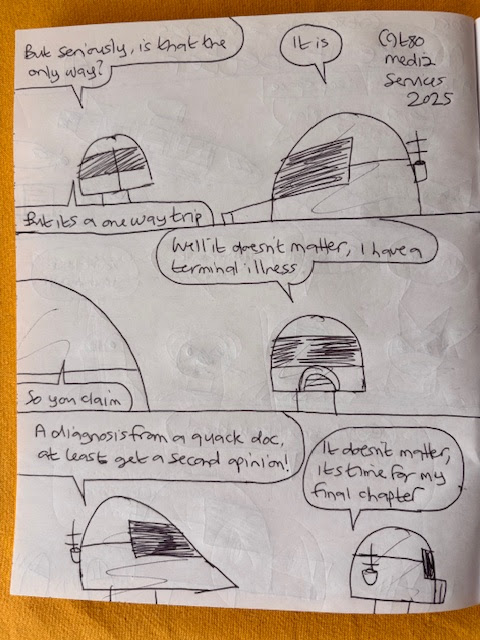 But seriously, is that the
only way?
It is
(C) t80
media
services
2025
But its a one way trip
Well it doesn't matter, I have a
terminal illness
So you claim
A diagnosis from a quack doc,
at least get a second opinion!
It doesn't matter,
its time for my
final chapter